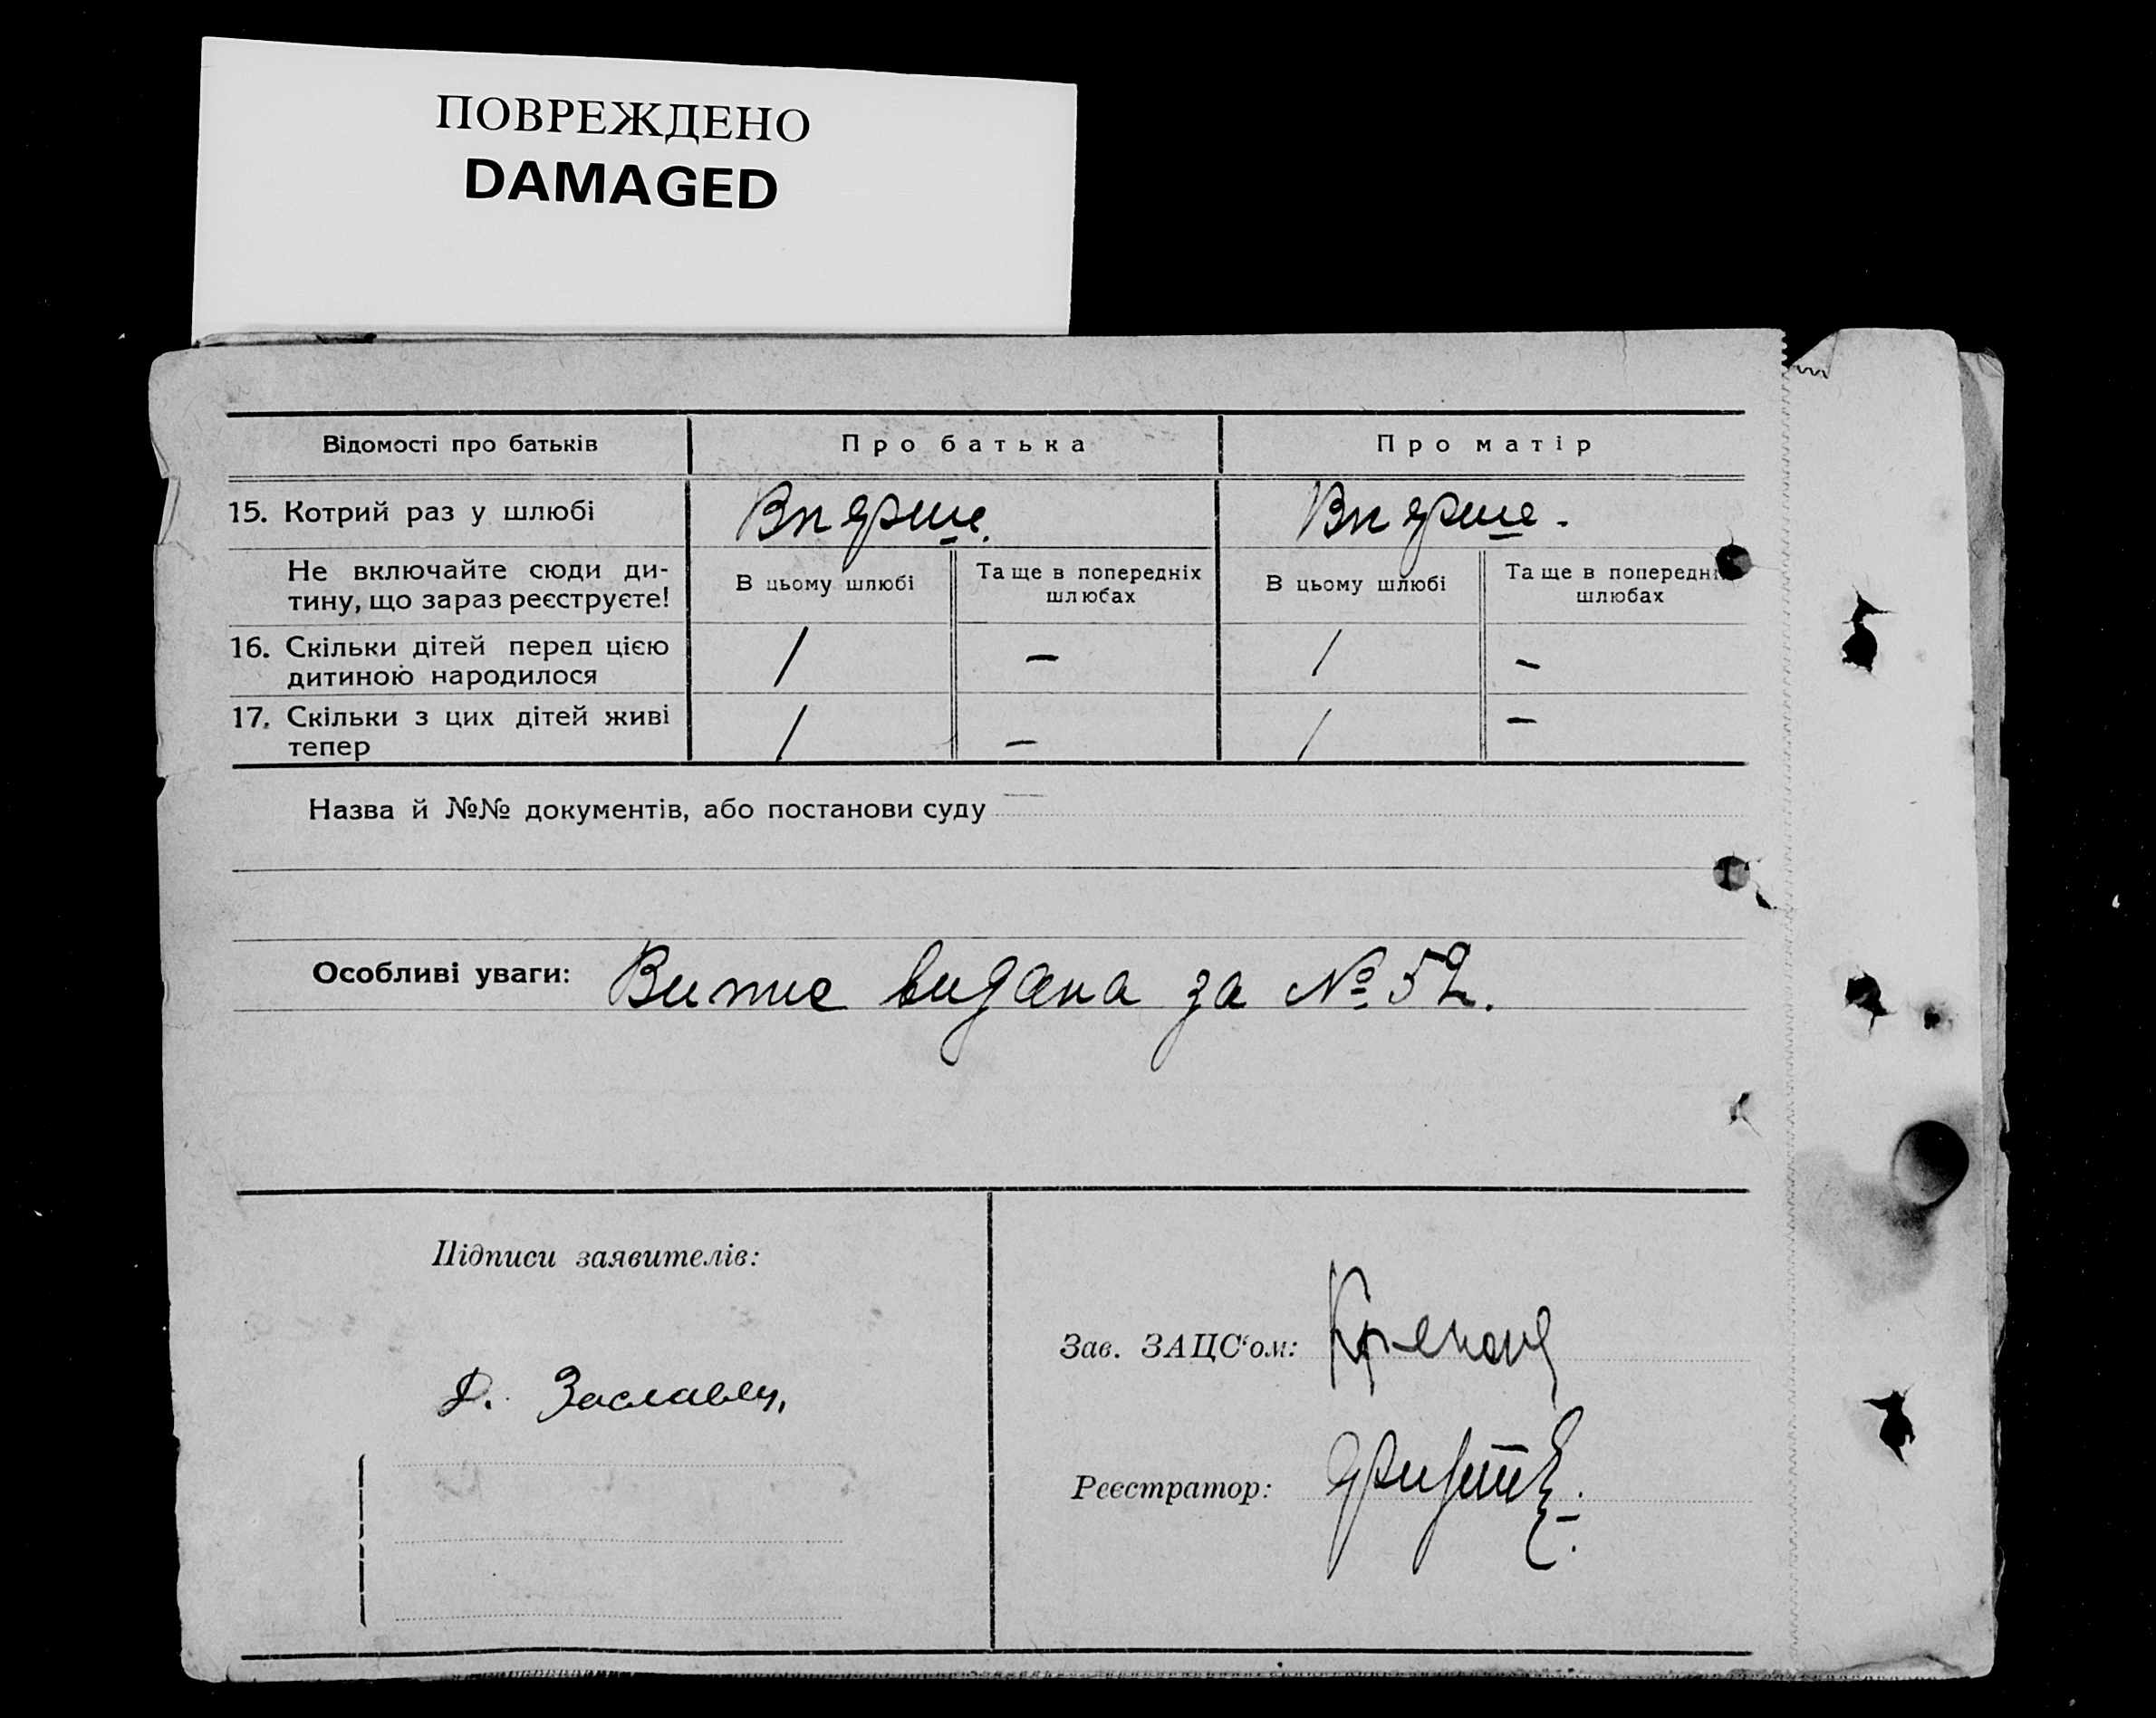 ПОВРЕЖДЕНО
DAMAGED
Відомості про батьків Про батька Про матір
15. Котрий раз у шлюбі Вперше. Вперше.
Не включайте сюди ди-
тину, що зараз реєструєте!
В цьому шлюбі Та ще в попередніх
шлюбах
В цьому шлюбі Та ще в попередн
шлюбах
16. Скільки дітей перед цією
дитиною народилося
1 – 1 –
17. Скільки з цих дітей живі
тепер
1 – 1 –
Назва й №№ документів, або постанови суду —
Особливі уваги: Випис видана за № 52.
Підписи заявителів:
Зав. ЗАЦС‘ом:
Д. Заславец,
Реєстратор: